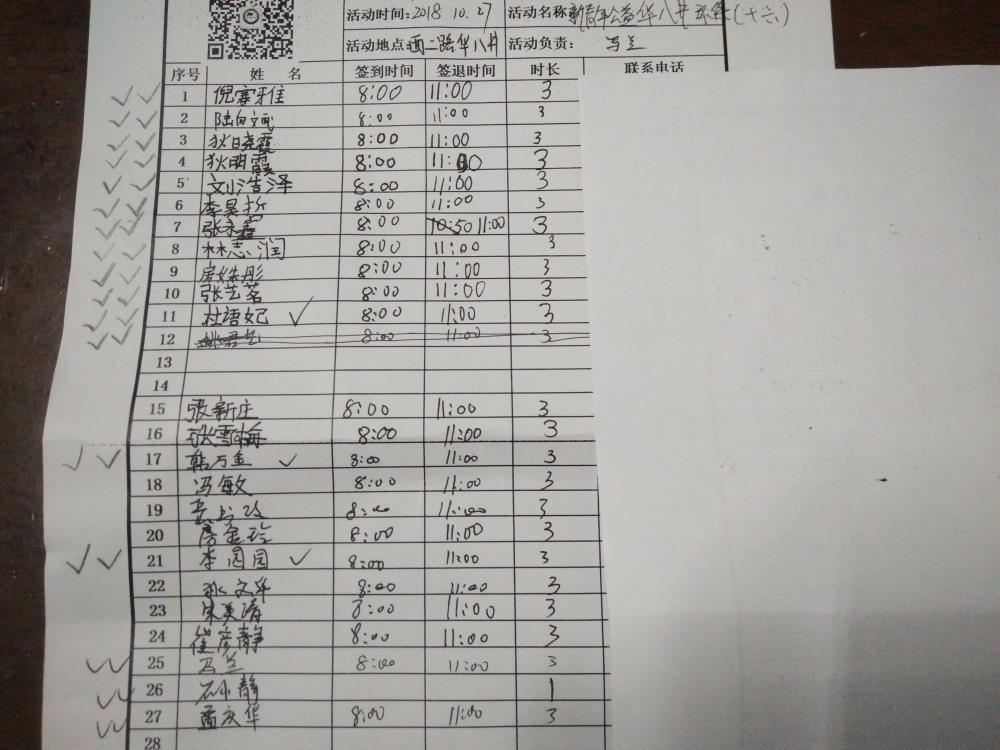 活动时间: 2018 10.27 活动名称 新青年公益华八井 (十六)
活动地点: 西二路华八井 活动负责: 马兰
序号 姓 名 签到时间 签退时间 时长 联系电话
1 倪寨雅佳 8:00 11:00 3
2 陆向文 8:00 11:00 3
3 狄晓霞 8:00 11:00 3
4 狄明霞 8:00 11:00 3
5 刘浩泽 8:00 11:00 3
6 李昊哲 8:00 11:00 3
7 张永鑫 8:00 10:50 11:00 3
8 林志润 8:00 11:00 3
9 房姝彤 8:00 11:00 3
10 张艺茗 8:00 11:00 3
11 杜语妃 ✓ 8:00 11:00 3
12 姚君艺 8:00 11:00 3
13
14
15 张新庄 8:00 11:00 3
16 张雪梅 8:00 11:00 3
17 韩万金 ✓ 8:00 11:00 3
18 冯敏 8:00 11:00 3
19 8:00 11:00 3
20 房金玲 8:00 11:00 3
21 李园园 ✓ 8:00 11:00 3
22 文华 8:00 11:00 3
23 朱英涛 8:00 11:00 3
24 崔彦静 8:00 11:00 3
25 马兰 8:00 11:00 3
26 石小静 1
27 孟庆华 8:00 11:00 3
28